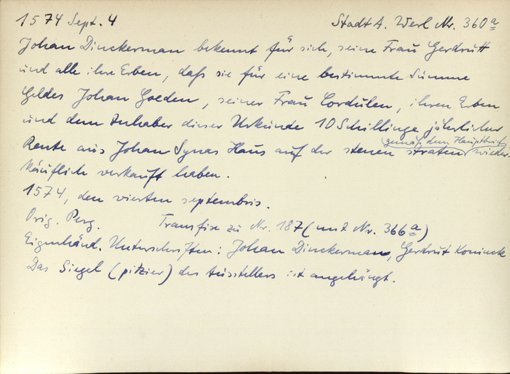 1574 Sept. 4 Stadt A. Werl Nr. 360a
Johan Dinckerman bekennt für sich, seine Frau Gerdrutt
und alle ihre Erben, daß sie für eine bestimmte Summe
Geldes Johan Goeden, seiner Frau Cordulen, ihren Erben
und dem Inhaber dieser Urkunde 10 Schillinge jährlicher
Rente aus Johan Synas Haus auf der stenen straten gemäß dem Hauptbrief wieder-
käuflich verkauft haben.
1574, den vierten septembris.
Orig. Perg. Transfix zu Nr. 187 (mit Nr. 366a)
Eigenhänd. Unterschriften: Johan Dinckerman, Gerdrut Koninck
Das Siegel (pitzier) des Ausstellers ist angehängt.